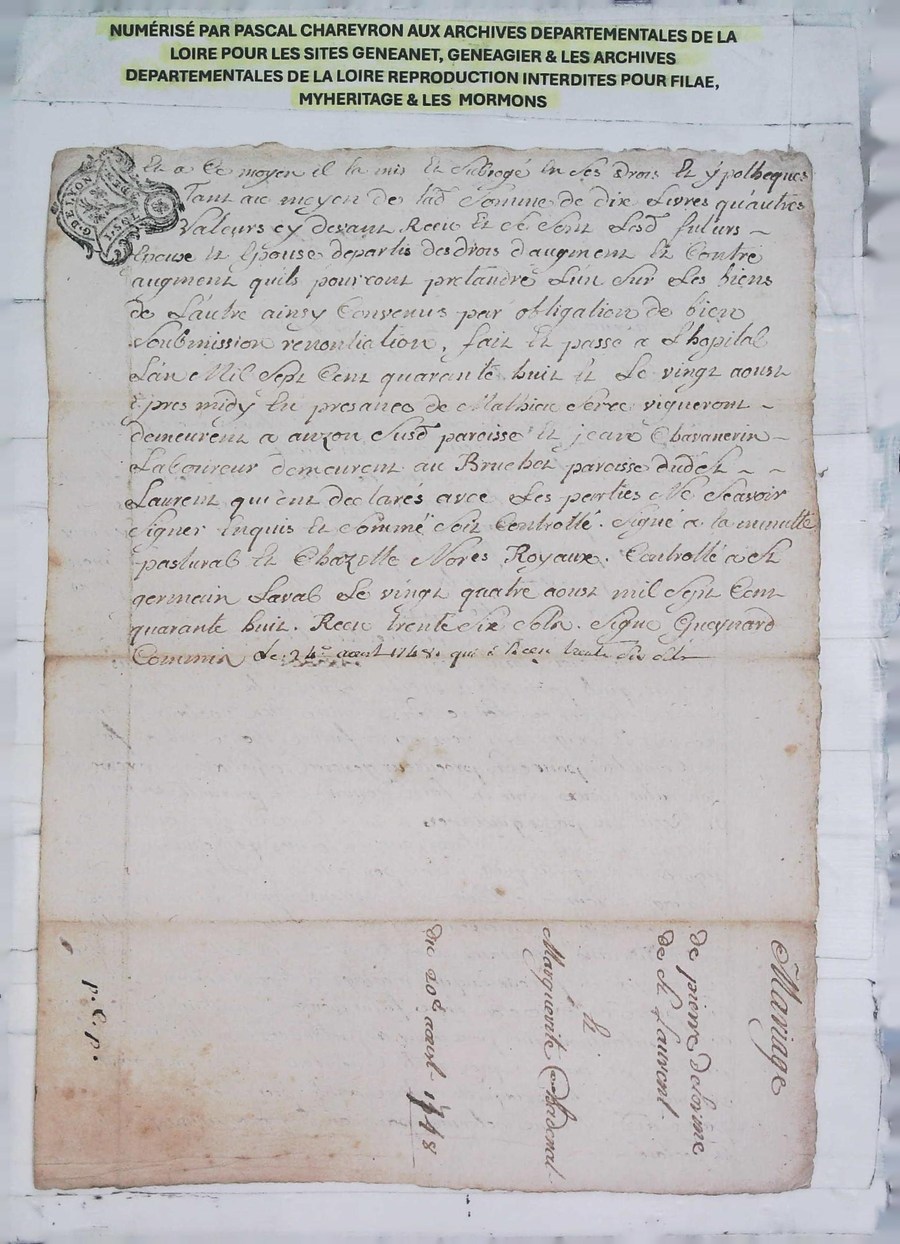 NUMÉRISÉ PAR PASCAL CHAREYRON AUX ARCHIVES DEPARTEMENTALES DE LA
LOIRE POUR LES SITES GENEANET, GENEAGIER & LES ARCHIVES
DEPARTEMENTALES DE LA LOIRE REPRODUCTION INTERDITES POUR FILAE,
MYHERITAGE & LES MORMONS
G. DE LYON
Et a Ce moyen il la mis Et Subrogé En Ses drois Et ypotheques
Tant au moyen de lad Somme de dix Livres qu'autres
Valeurs cy devant Receu Et Se Sont Lesd futurs
Epoux Et Epouse departis des drois d'augment Et Contre
augment quils pourront pretandre L'un Sur Les biens
de L'autre ainsy Convenus par obligation de bien
Soubmission renontiation, fait Et passé a L'hopital
L'an Mil Sept Cent quarante huit Et Le vingt aoust
Epres midy En presance de Mathieu Serre vigneront
demeurent a auzon Susd paroisse Et jean Chavanerin
Laboureur demeurent au Bruchet paroisse dud St
Laurent qui ont declarés avec Les parties Ne Scavoir
Signer Enquis Et Sommé Soit Controllé. Signé a la minutte
pastural Et Chazelle Nores Royaux. Controllé a St
germain Laval Le vingt quatre aoust mil Sept Cent
quarante huit. Receu trente Six Sols. Signe Gueynard
Commis Le 24e aoust 1748. qui a Receu trente Six Sols
Mariage
de pierre delorme
de St Laurent
Et
Marguerite Chadenat
du 20e aoust 1748
p. C. p.